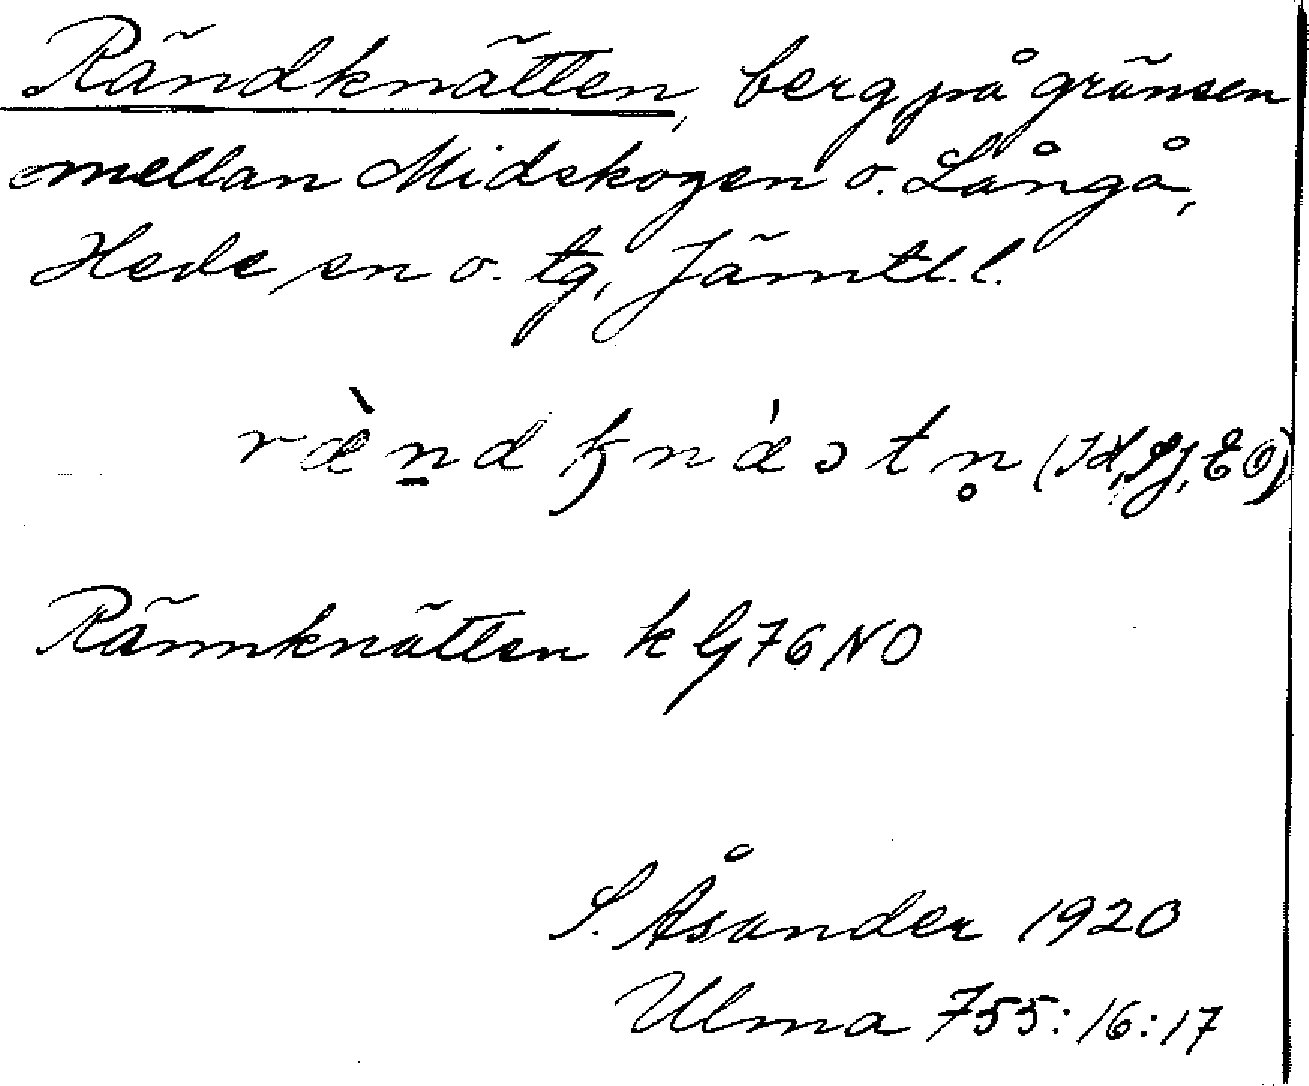 Rändknätten, berg på gränsen
mellan Midskogen o. Långå,
Hede sn o. tg, Jämtl. l.
ræ̀n̠d kn ǽɔtn̥
Rännknätten k G76NO
S. Åsander 1920
Ulma 755:16:17